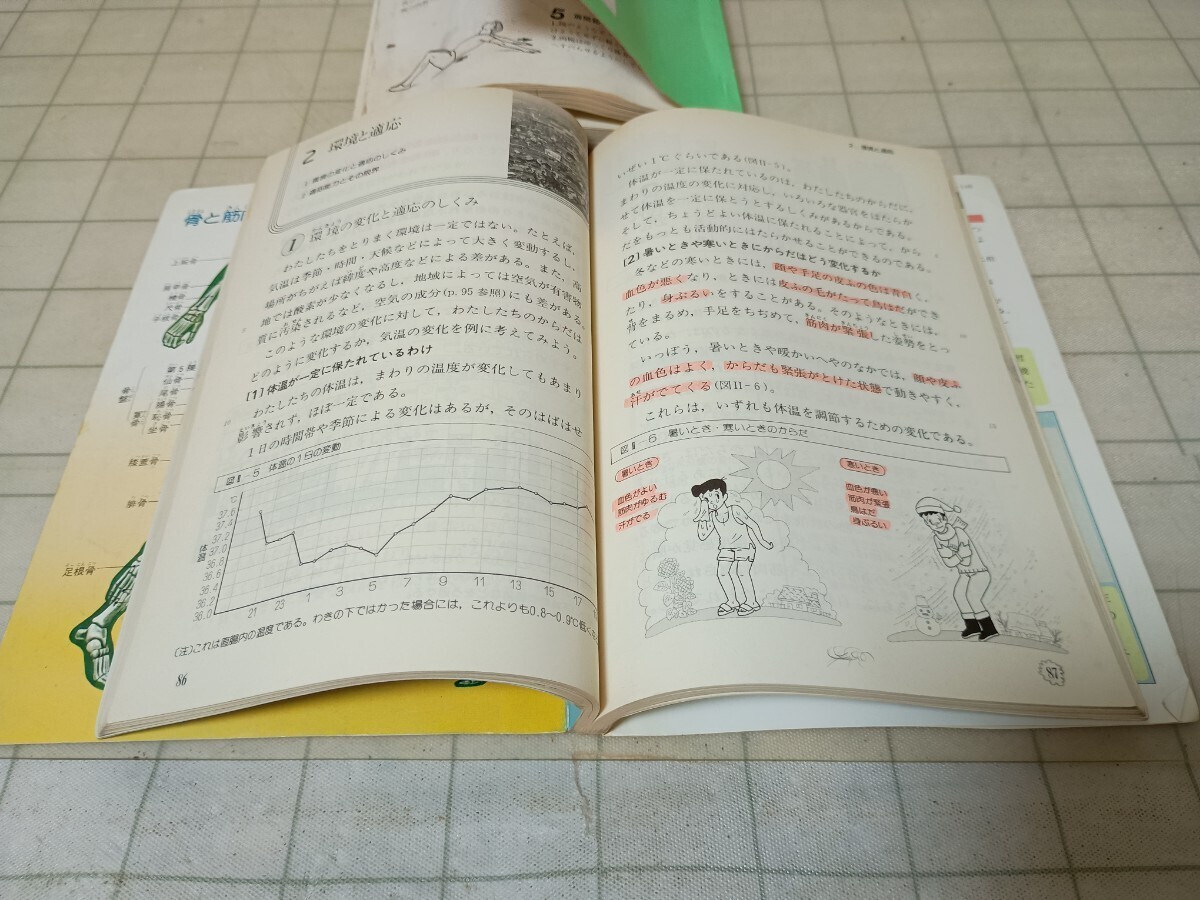 5
2 環境と適応
1 環境の変化と適応のしくみ
2 適応能力とその限界
1 環境の変化と適応のしくみ
わたしたちをとりまく環境は一定ではない。たとえば，
気温は季節・時間・天候などによって大きく変動するし，
場所がちがえば緯度や高度などによる差がある。また，高
地では酸素が少なくなるし，地域によっては空気が有害物
質に汚染されるなど，空気の成分(p.95参照)にも差がある。
このような環境の変化に対して，わたしたちのからだは
どのように変化するか，気温の変化を例に考えてみよう。
[1] 体温が一定に保たれているわけ
わたしたちの体温は，まわりの温度が変化してもあまり
影響されず，ほぼ一定である。
1日の時間帯や季節による変化はあるが，そのはばはせ
図Ⅱ-5 体温の1日の変動
℃
37.6
37.4
37.2
37.0
36.8
36.6
36.4
36.2
36.0
体温
21 23 1 3 5 7 9 11 13 15 17
(注)これは直腸内の温度である。わきの下ではかった場合には，これよりも0.8～0.9℃低くな
86
いぜい1℃ぐらいである(図Ⅱ-5)。
体温が一定に保たれているのは，わたしたちのからだに，
まわりの温度の変化に対応し，いろいろな器官をはたらか
せて体温を一定に保とうとするしくみがあるからである。
そして，ちょうどよい体温に保たれることによって，から
だをもっとも活動的にはたらかせることができるのである。
[2] 暑いときや寒いときにからだはどう変化するか
冬などの寒いときには，顔や手足の皮ふの色は青白く，
血色が悪くなり，ときには皮ふの毛がたって鳥はだができ
たり，身ぶるいをすることがある。そのようなときには，
背をまるめ，手足をちぢめて，筋肉が緊張した姿勢をとっ
ている。
いっぽう，暑いときや暖かいへやのなかでは，顔や皮ふ
の血色はよく，からだも緊張がとけた状態で動きやすく，
汗がでてくる(図Ⅱ-6)。
これらは，いずれも体温を調節するための変化である。
図Ⅱ-6 暑いとき・寒いときのからだ
暑いとき
血色がよい
筋肉がゆるむ
汗がでる
寒いとき
血色が悪い
筋肉が緊張
鳥はだ
身ぶるい
87
骨と筋
上腕骨
手根骨
膝蓋骨
足根骨